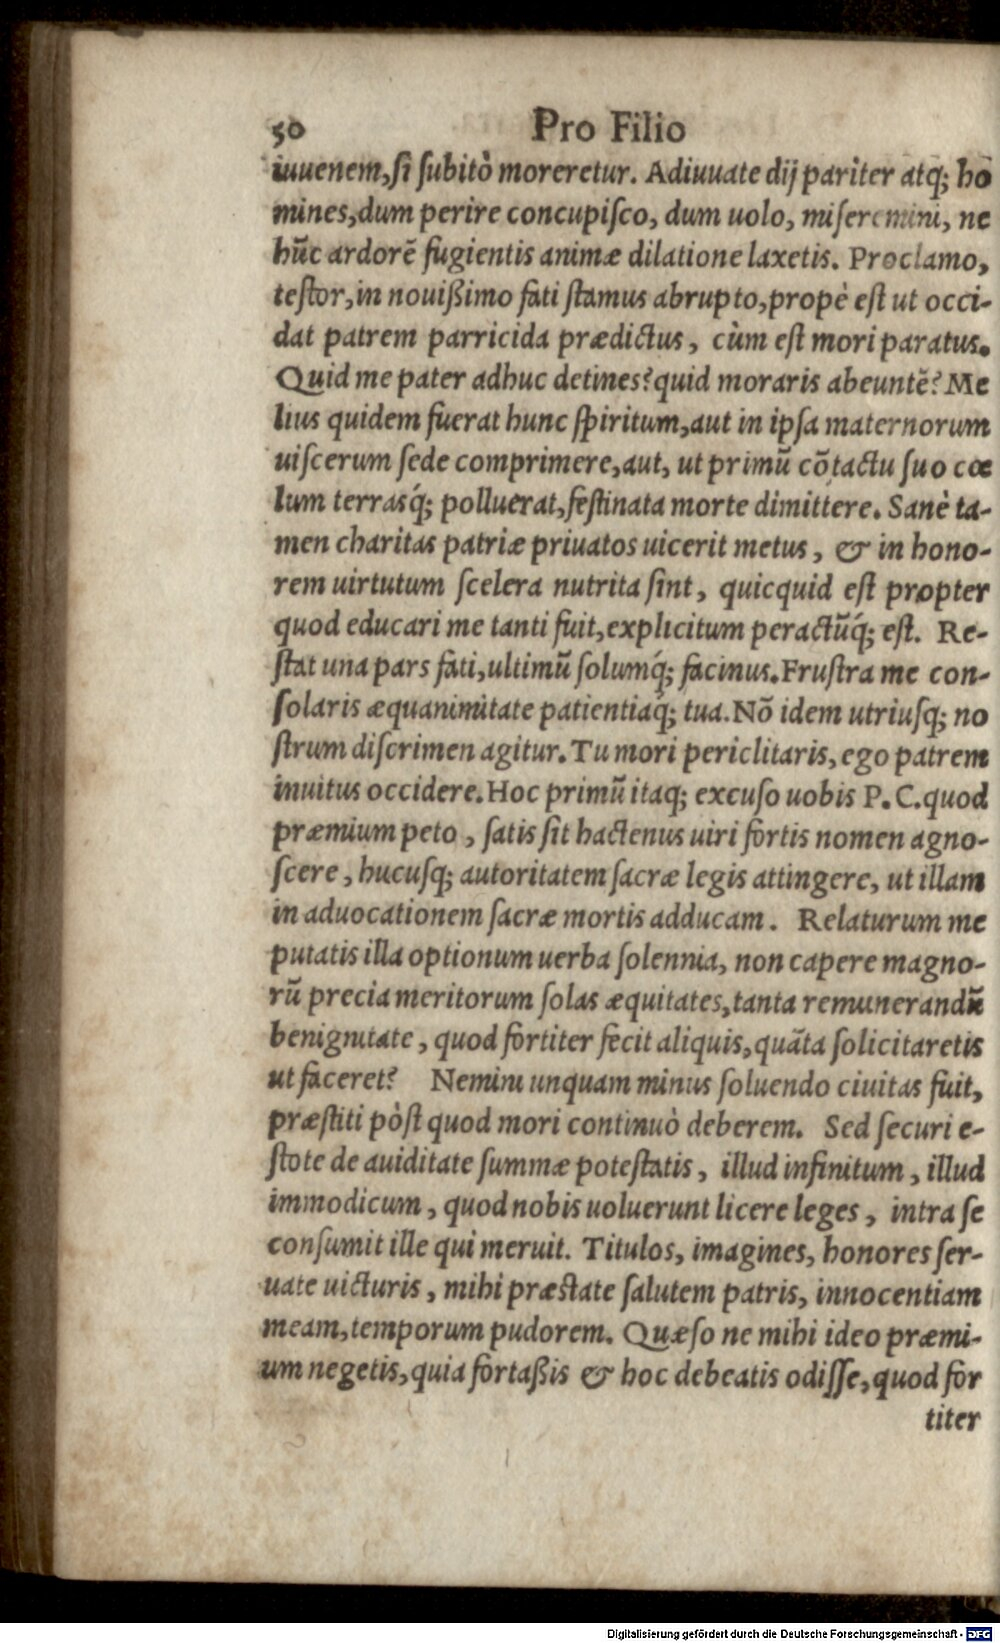 50 Pro Filio
iuuenem, ſi ſubitò moreretur. Adiuuate dij pariter atq; ho
mines, dum perire concupiſco, dum uolo, miſeremini, ne
hũc ardorẽ fugientis animæ dilatione laxetis. Proclamo,
teſtor, in nouißimo fati ſtamus abrupto, propè eſt ut occi-
dat patrem parricida prædictus, cùm eſt mori paratus.
Quid me pater adhuc detines? quid moraris abeuntẽ? Me
lius quidem fuerat hunc ſpiritum, aut in ipſa maternorum
uiſcerum ſede comprimere, aut, ut primũ cõtactu ſuo cœ
lum terrasq́; polluerat, feſtinata morte dimittere. Sanè ta-
men charitas patriæ priuatos uicerit metus, & in hono-
rem uirtutum ſcelera nutrita ſint, quicquid eſt propter
quod educari me tanti fuit, explicitum peractũq́; eſt. Re-
ſtat una pars fati, ultimũ ſolumq́; facinus. Fruſtra me con-
ſolaris æquanimitate patientiaq́; tua. Nõ idem utriuſq; no
ſtrum diſcrimen agitur. Tu mori periclitaris, ego patrem
inuitus occidere. Hoc primũ itaq; excuſo uobis P. C. quod
præmium peto, ſatis ſit hactenus uiri fortis nomen agno-
ſcere, hucuſq; autoritatem ſacræ legis attingere, ut illam
in aduocationem ſacræ mortis adducam. Relaturum me
putatis illa optionum uerba ſolennia, non capere magno-
rũ precia meritorum ſolas æquitates, tanta remunerandũ
benignitate, quod fortiter fecit aliquis, quãta ſolicitaretis
ut faceret? Nemini unquam minus ſoluendo ciuitas fuit,
præſtiti pòſt quod mori continuò deberem. Sed ſecuri e-
ſtote de auiditate ſummæ poteſtatis, illud infinitum, illud
immodicum, quod nobis uoluerunt licere leges, intra ſe
conſumit ille qui meruit. Titulos, imagines, honores ſer-
uate uicturis, mihi præſtate ſalutem patris, innocentiam
meam, temporum pudorem. Quæſo ne mihi ideo præmi-
um negetis, quia fortaßis & hoc debeatis odiſſe, quod for
titer
Digitalisierung gefördert durch die Deutsche Forschungsgemeinschaft - DFG